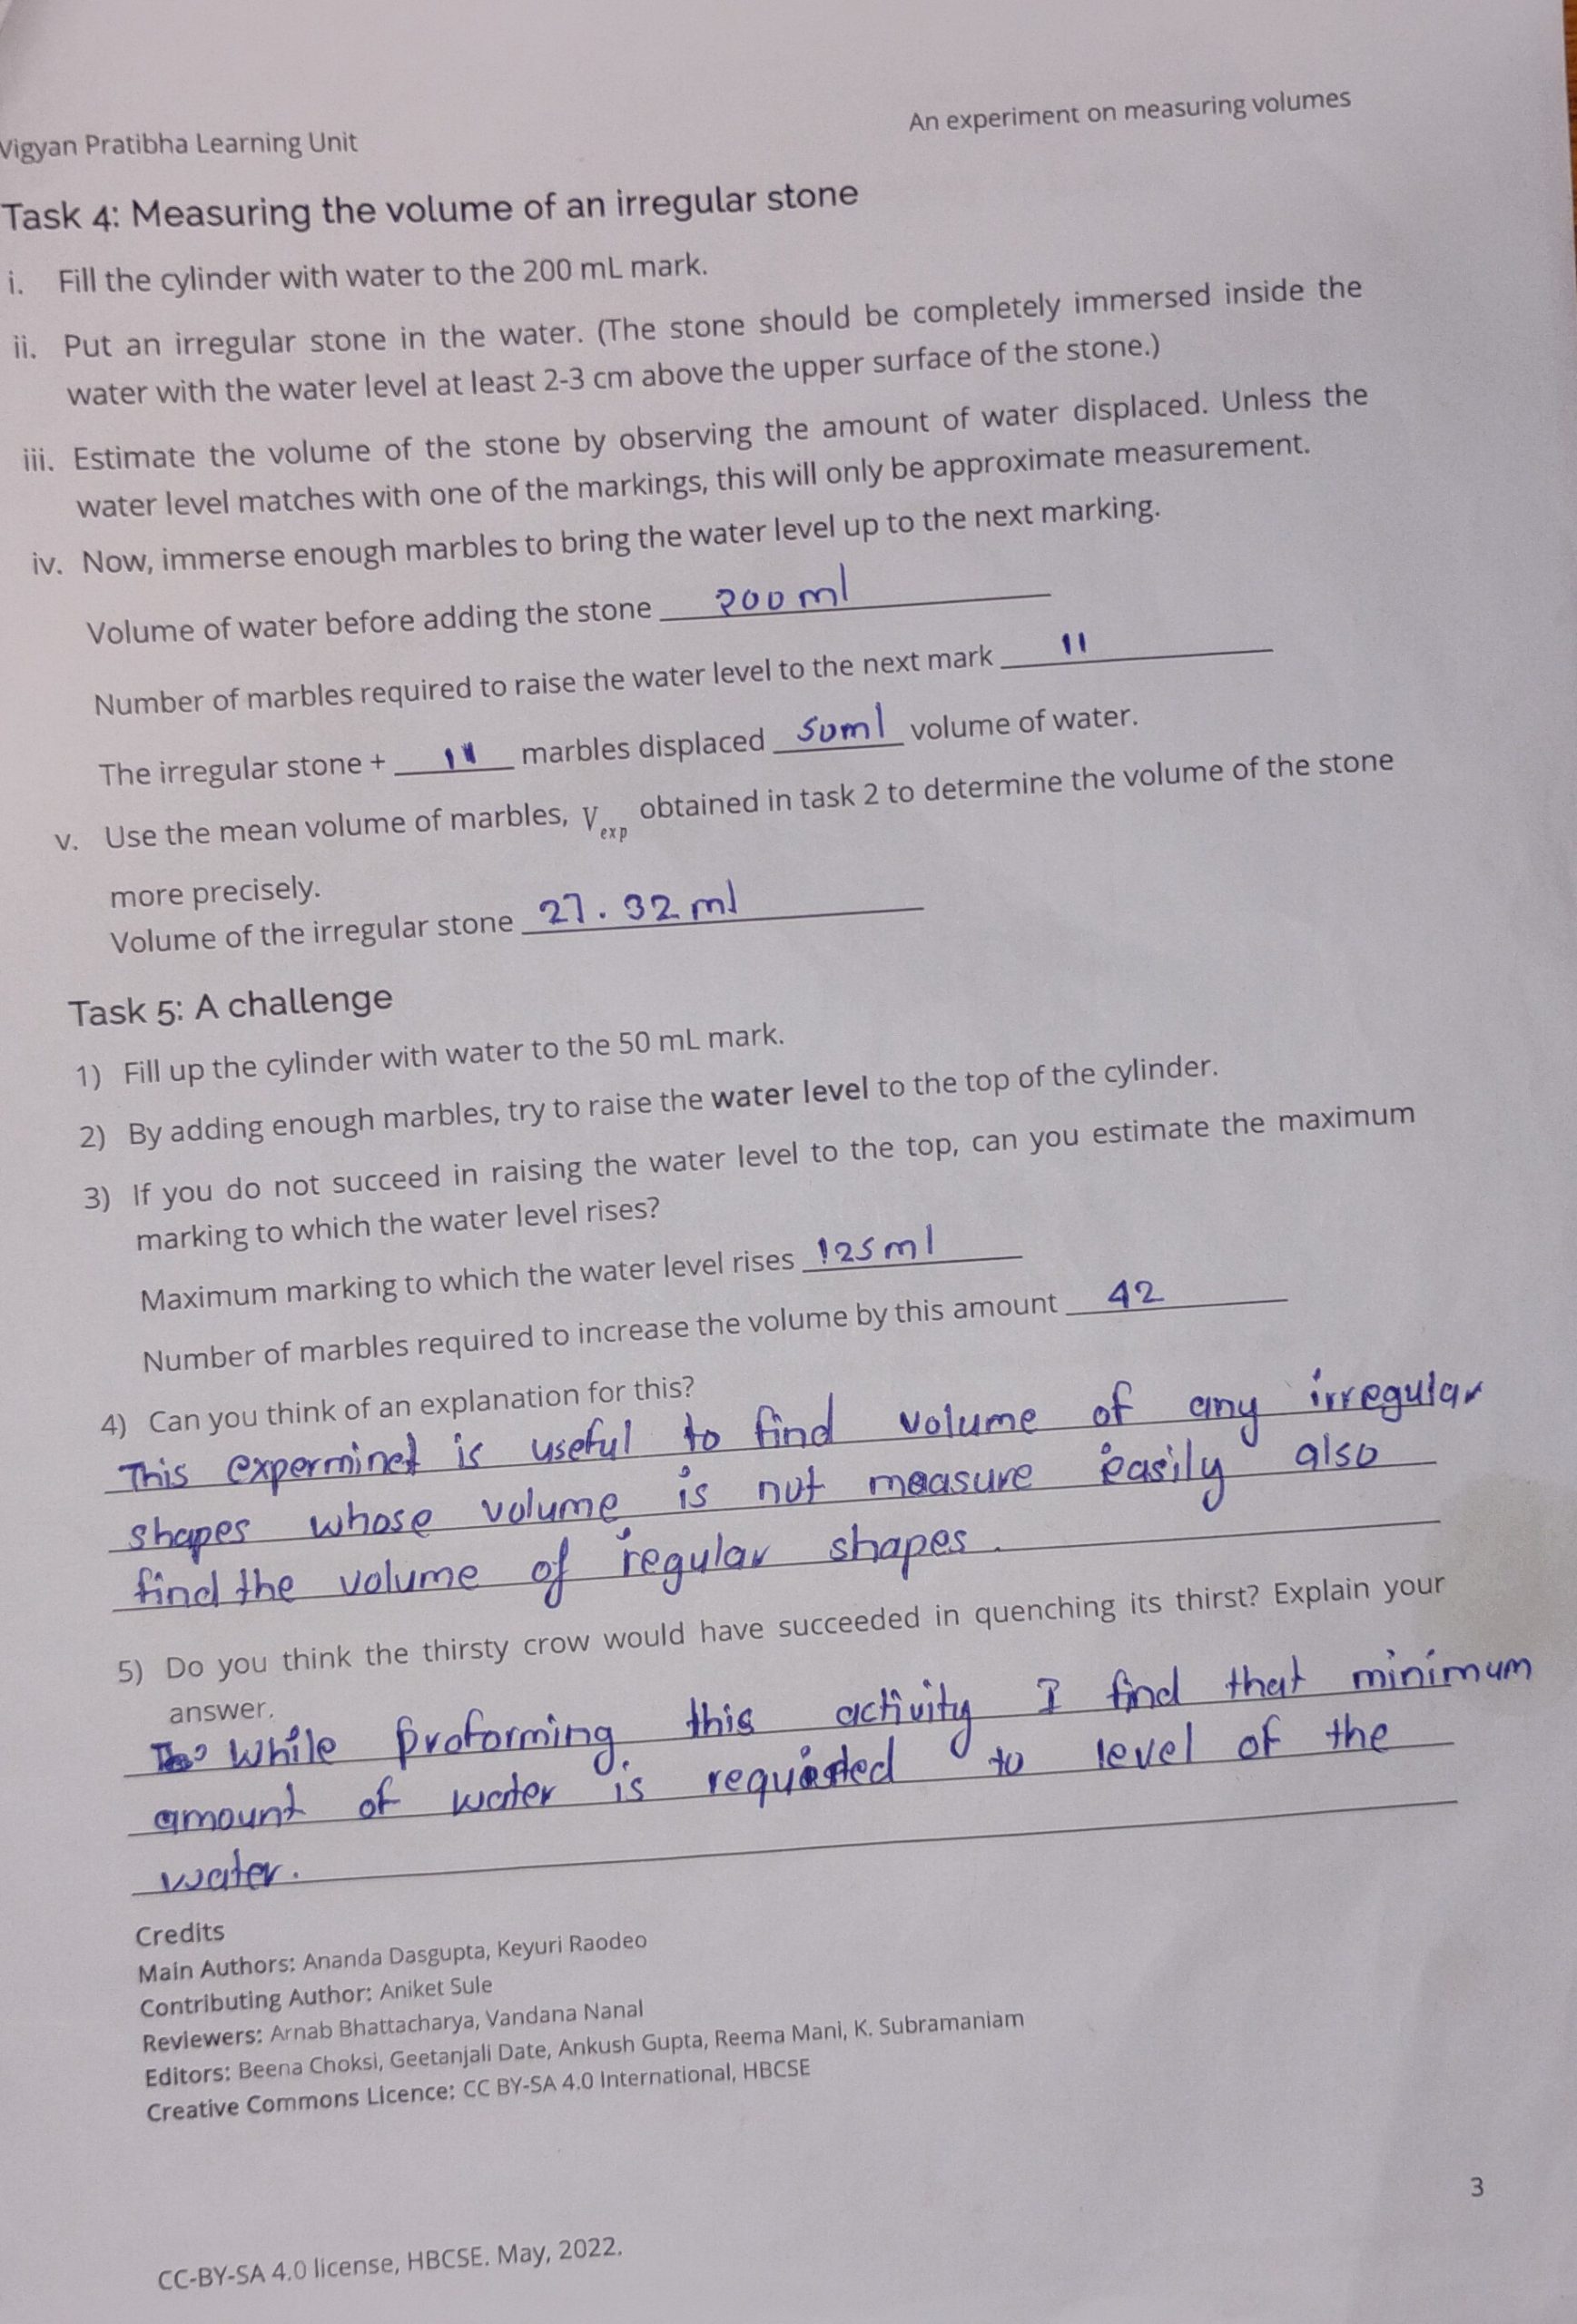 Vigyan Pratibha Learning Unit
An experiment on measuring volumes
Task 4: Measuring the volume of an irregular stone
i. Fill the cylinder with water to the 200 mL mark.
ii. Put an irregular stone in the water. (The stone should be completely immersed inside the
water with the water level at least 2-3 cm above the upper surface of the stone.)
iii. Estimate the volume of the stone by observing the amount of water displaced. Unless the
water level matches with one of the markings, this will only be approximate measurement.
iv. Now, immerse enough marbles to bring the water level up to the next marking.
Volume of water before adding the stone 200 ml
Number of marbles required to raise the water level to the next mark 11
The irregular stone + 11 marbles displaced 50ml volume of water.
v. Use the mean volume of marbles, V exp obtained in task 2 to determine the volume of the stone
more precisely.
Volume of the irregular stone 27.32 ml
Task 5: A challenge
1) Fill up the cylinder with water to the 50 mL mark.
2) By adding enough marbles, try to raise the water level to the top of the cylinder.
3) If you do not succeed in raising the water level to the top, can you estimate the maximum
marking to which the water level rises?
Maximum marking to which the water level rises 125 ml
Number of marbles required to increase the volume by this amount 42
4) Can you think of an explanation for this?
This experminet is useful to find volume of any irregular
shapes whose volume is not measure easily also
find the volume of regular shapes.
5) Do you think the thirsty crow would have succeeded in quenching its thirst? Explain your
answer.
While proforming this activity I find that minimum
amount of water is to level of the
water.
Credits
Main Authors: Ananda Dasgupta, Keyuri Raodeo
Contributing Author: Aniket Sule
Reviewers: Arnab Bhattacharya, Vandana Nanal
Editors: Beena Choksi, Geetanjali Date, Ankush Gupta, Reema Mani, K. Subramaniam
Creative Commons Licence: CC BY-SA 4.0 International, HBCSE
3
CC-BY-SA 4.0 license, HBCSE. May, 2022.